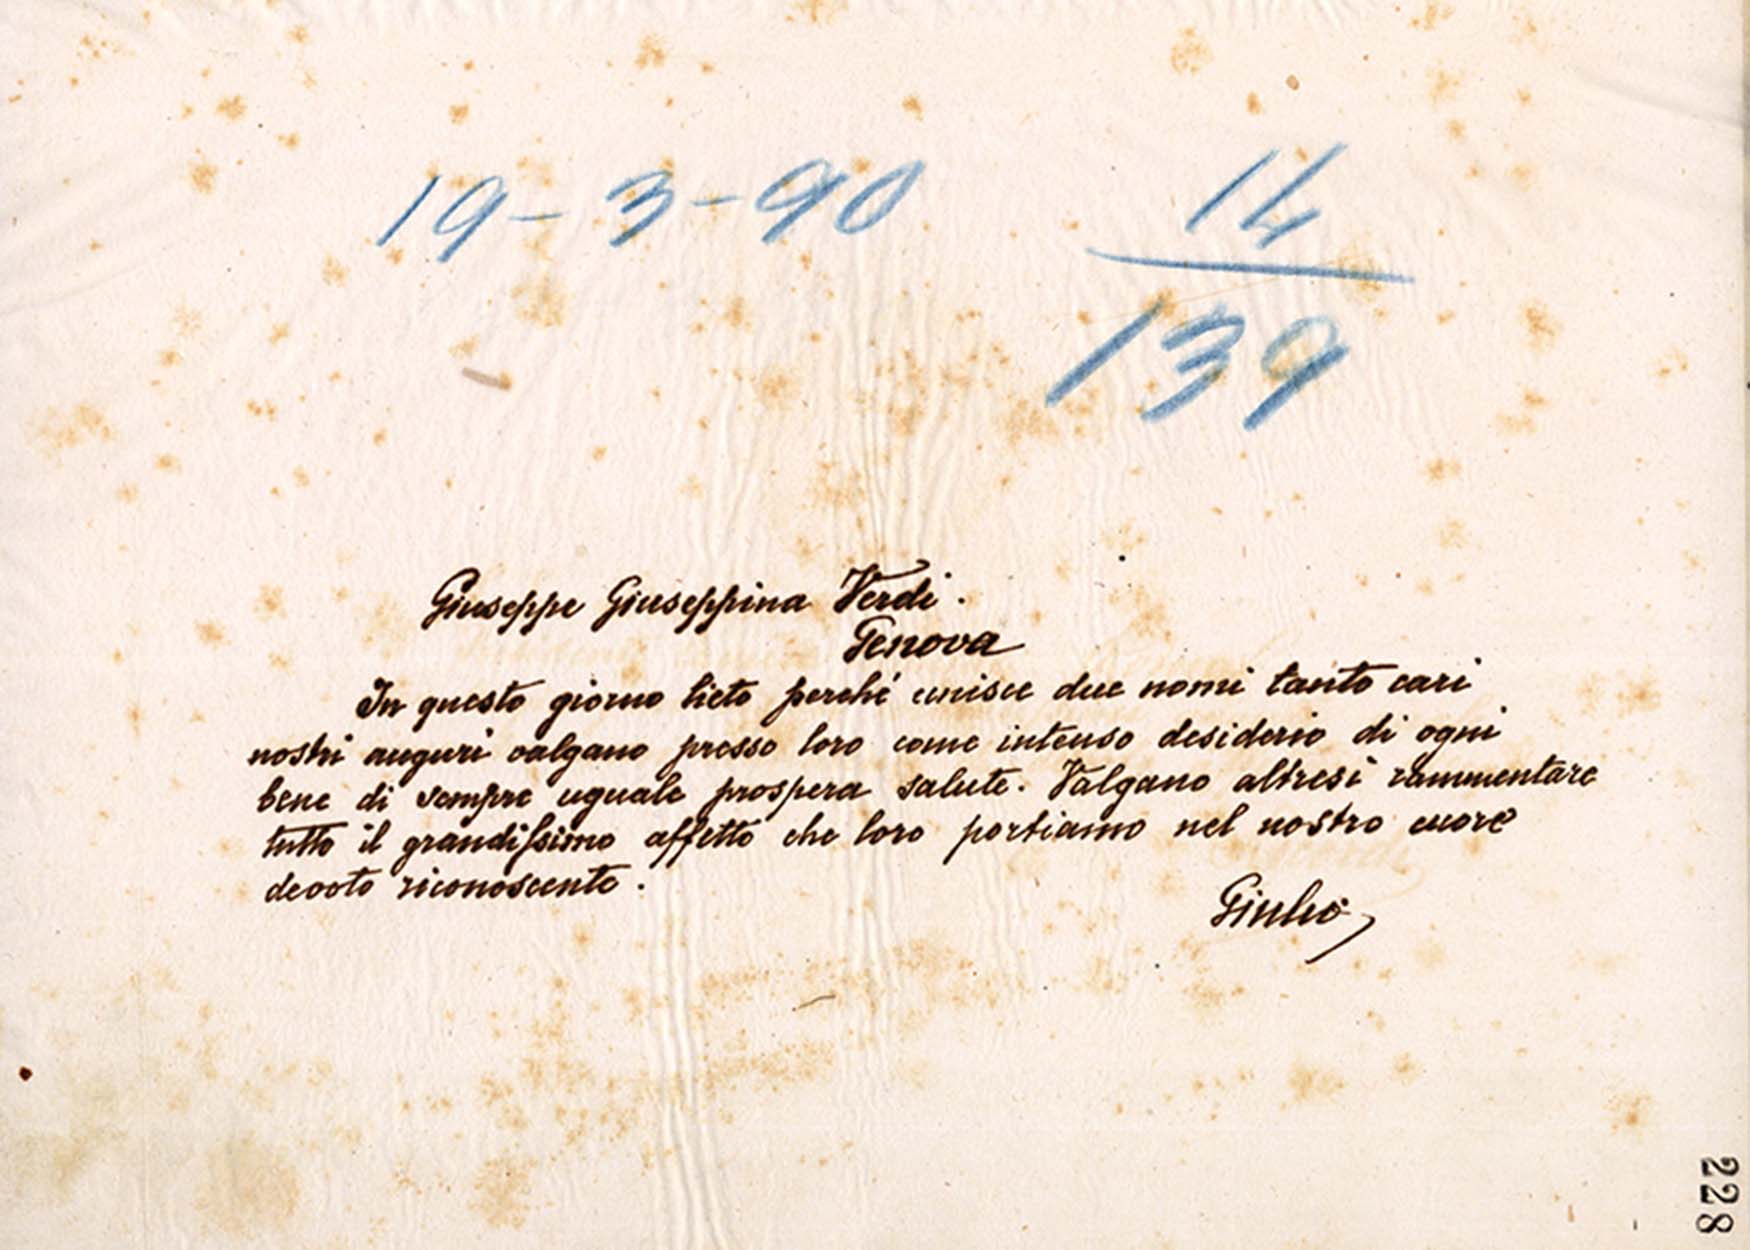 19-3-90
14
139
Giuseppe Giuseppina Verdi.
Genova
In questo giorno lieto perché unisce due nomi tanto cari
nostri auguri valgano presso loro come intenso desiderio di ogni
bene di sempre uguale prospera salute. Valgano altresì rammentare
tutto il grandissimo affetto che loro portiamo nel nostro cuore
devoto riconoscente.
Giulio
228